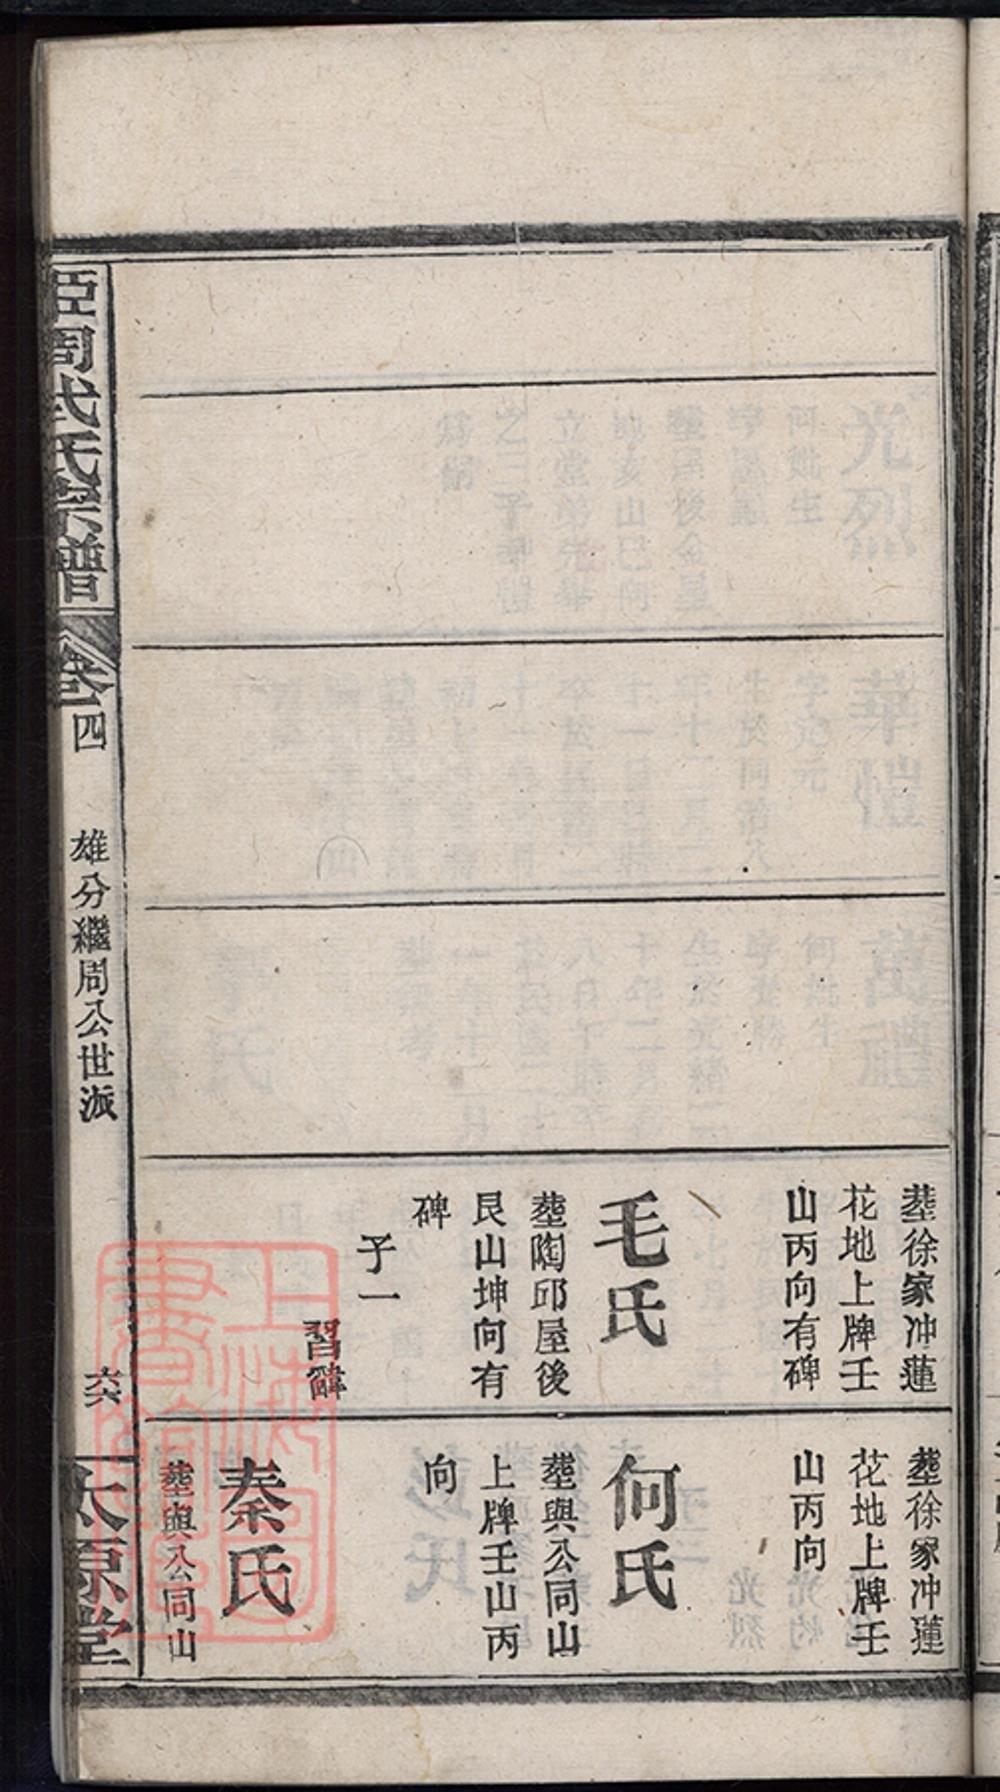 臣周武氏宗譜
卷四
雄分繼周公世派
六六
太原堂
塟徐家冲蓮
花地上牌壬
山丙向有碑
毛氏
塟陶邱屋後
艮山坤向有
碑
子一
習
塟徐家冲蓮
花地上牌壬
山丙向
何氏
塟與公同山
上牌壬山丙
向
秦氏
塟與公同山
上海圖書館藏